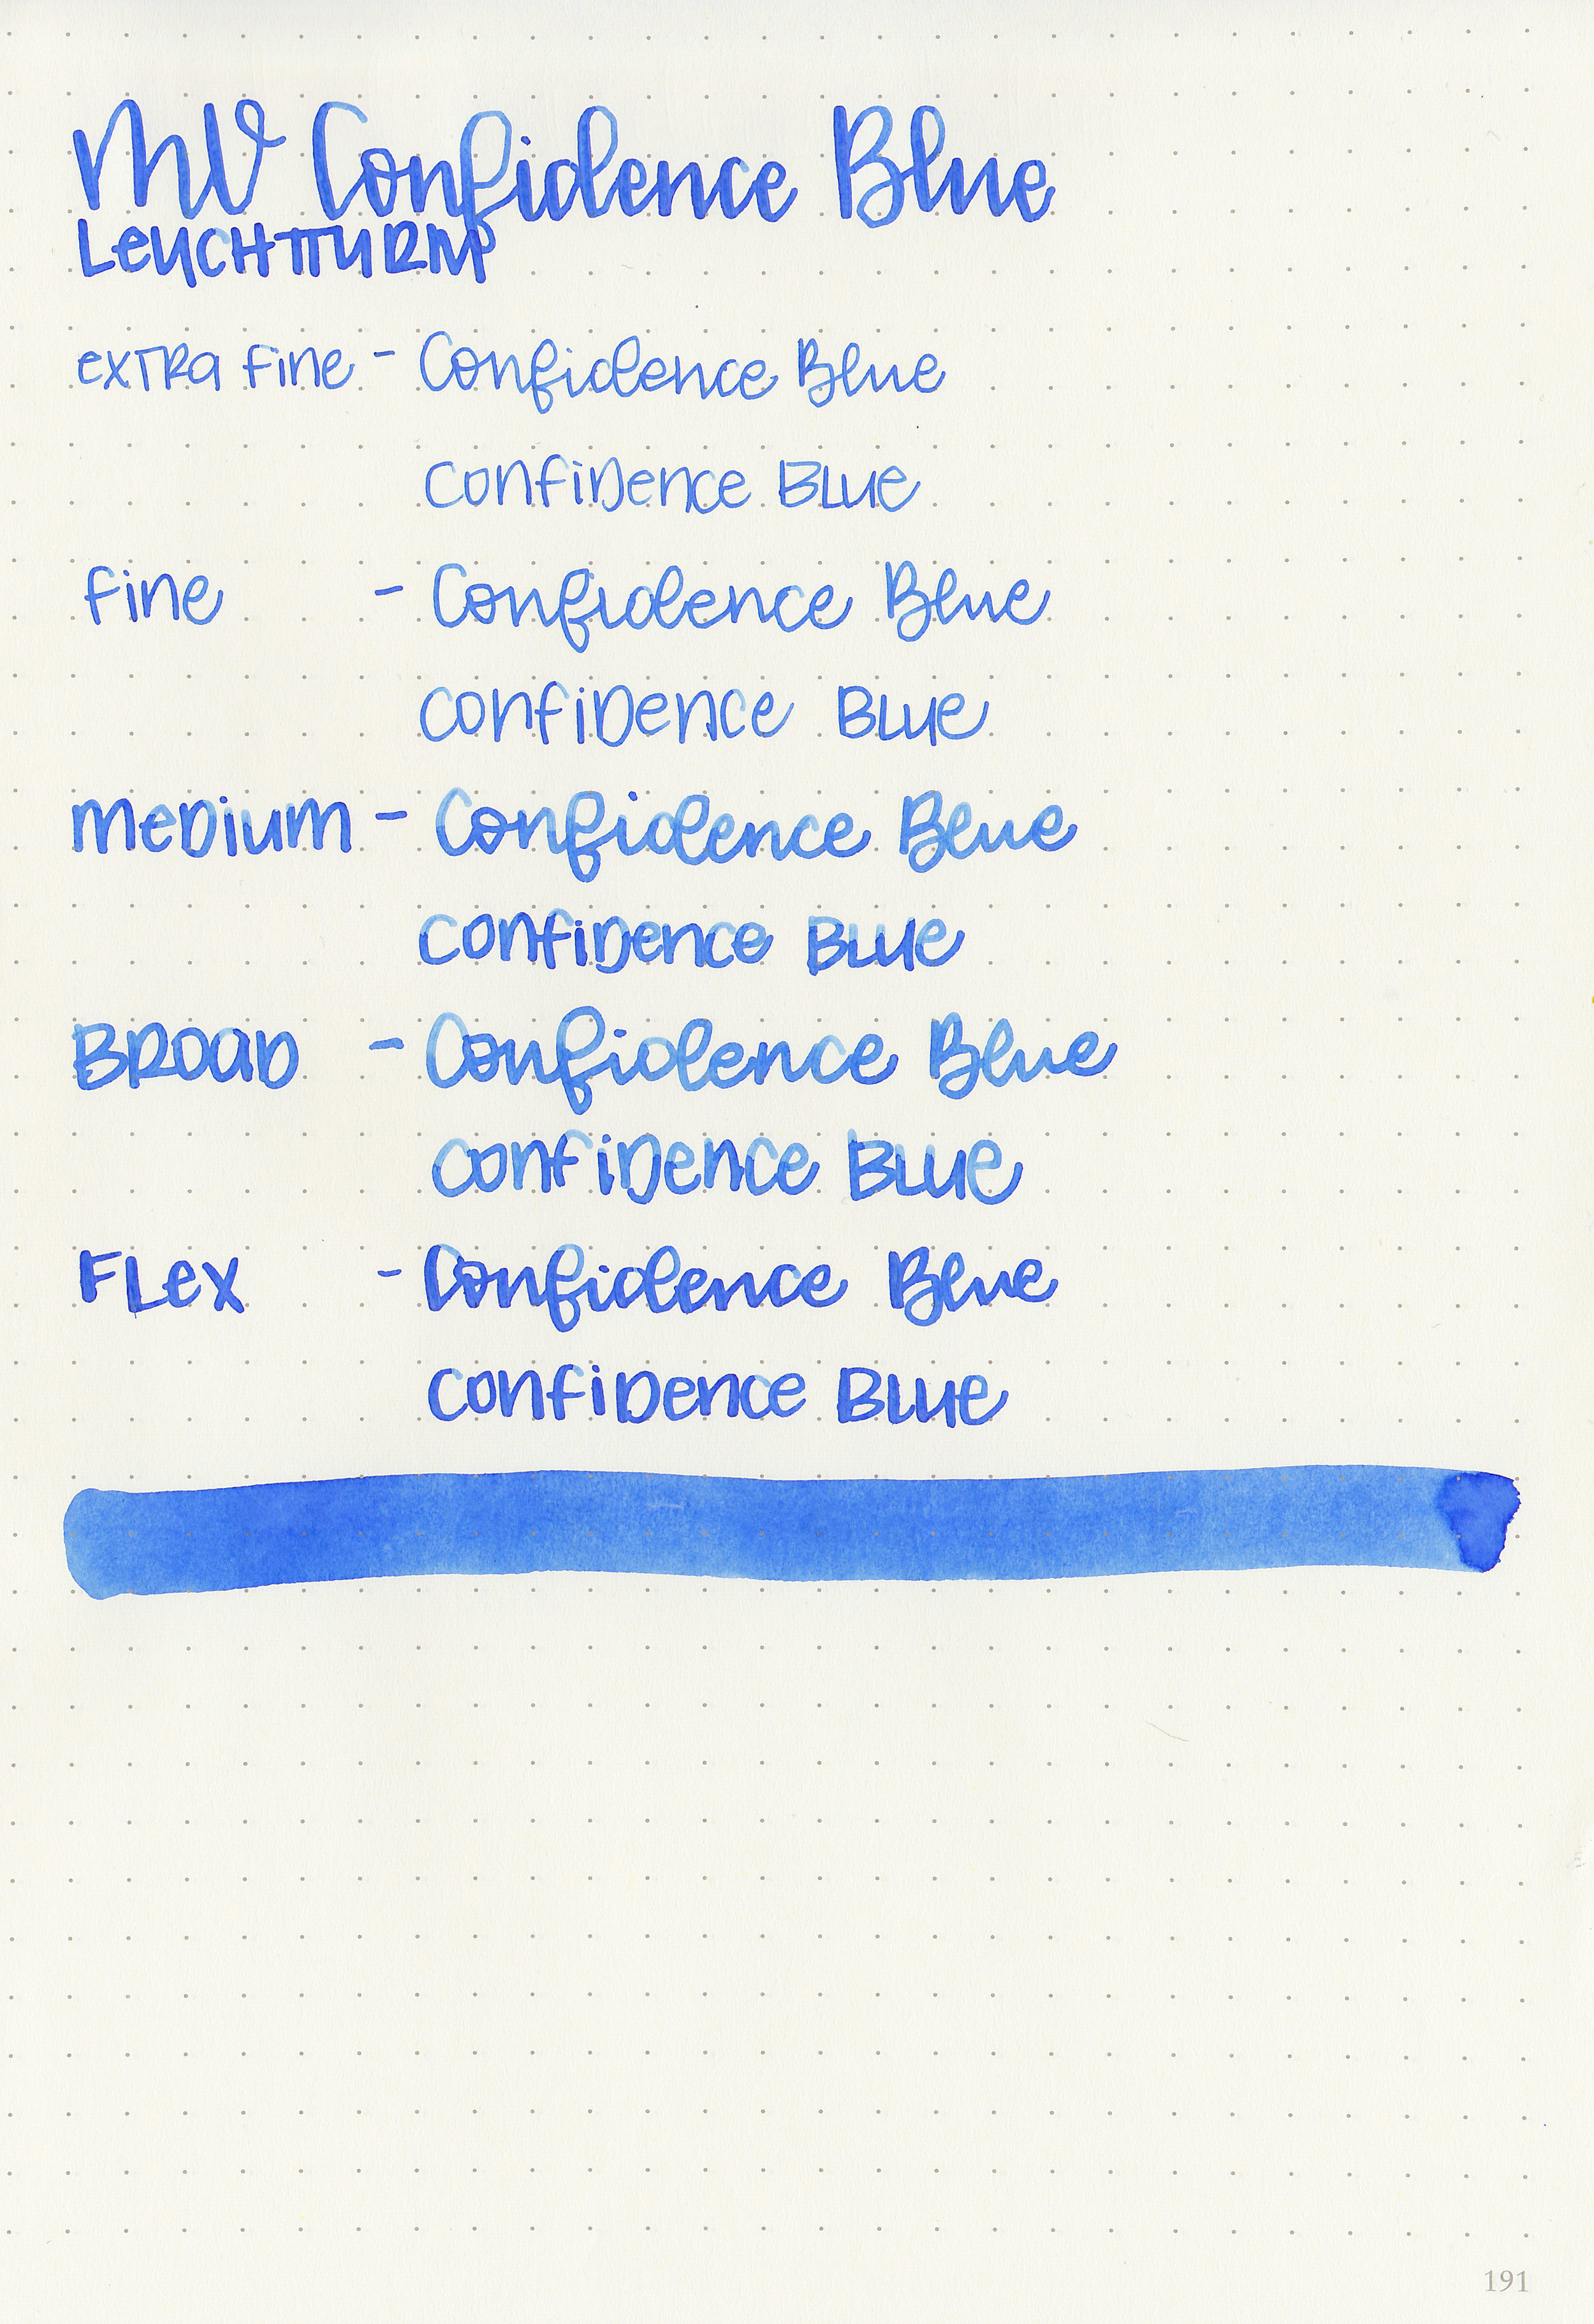 MV Confidence Blue
Leuchtturm
extra fine - Confidence Blue
Confidence Blue
fine - Confidence Blue
Confidence Blue
medium - Confidence Blue
Confidence Blue
Broad - Confidence Blue
Confidence Blue
Flex - Confidence Blue
Confidence Blue
191